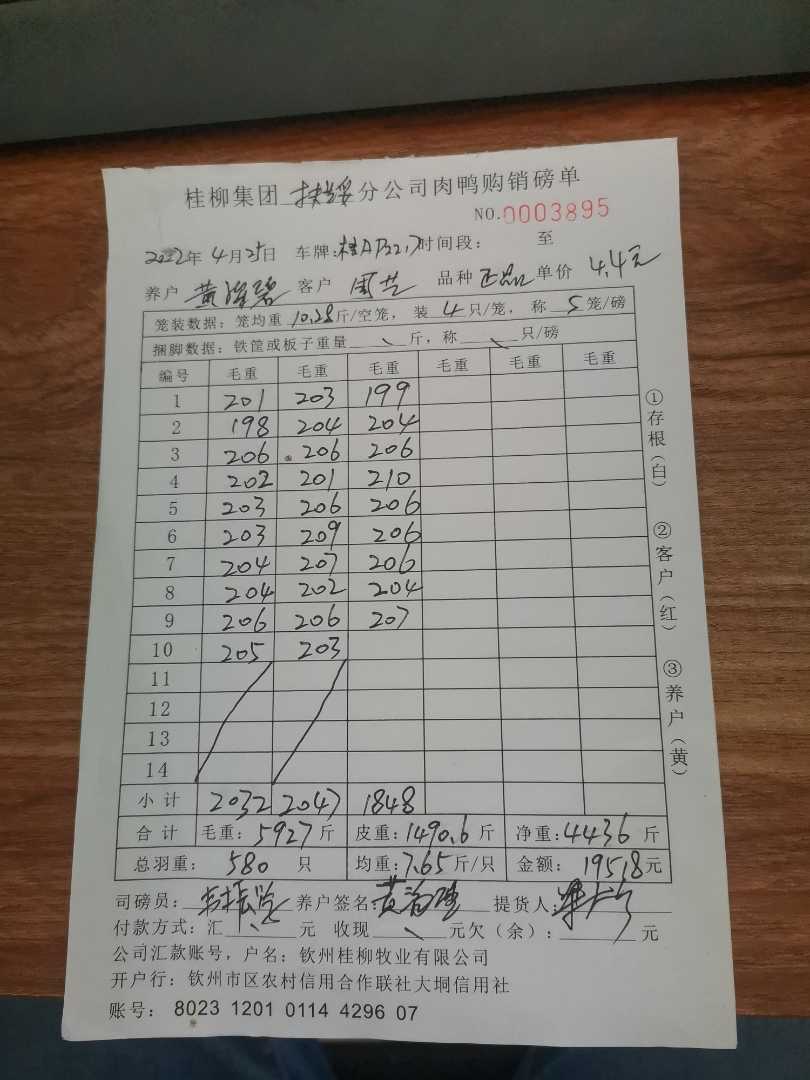 桂柳集团 扶绥 分公司肉鸭购销磅单
NO.0003895
2022年 4月25日 车牌: 时间段: 至
养户 黄 碧 客户 周艺 品种 正品 单价 4.4元
笼装数据: 笼均重 10.28斤/空笼, 装 4 只/笼, 称 5 笼/磅
捆脚数据: 铁筐或板子重量 斤, 称 只/磅
编号 毛重 毛重 毛重 毛重 毛重 毛重
1 201 203 199
2 198 204 204
3 206 206 206
4 202 201 210
5 203 206 206
6 203 209 206
7 204 207 206
8 204 202 204
9 206 206 207
10 205 203
11
12
13
14
小计 2032 2047 1848
合计 毛重: 5927 斤 皮重: 1490.6 斤 净重: 4436 斤
总羽重: 580 只 均重: 7.65 斤/只 金额: 19518元
司磅员: 养户签名: 提货人:
付款方式: 汇 元 收现 元欠(余): 元
公司汇款账号, 户名: 钦州桂柳牧业有限公司
开户行: 钦州市区农村信用合作联社大垌信用社
账号: 8023 1201 0114 4296 07
①存根(白)
②客户(红)
③养户(黄)